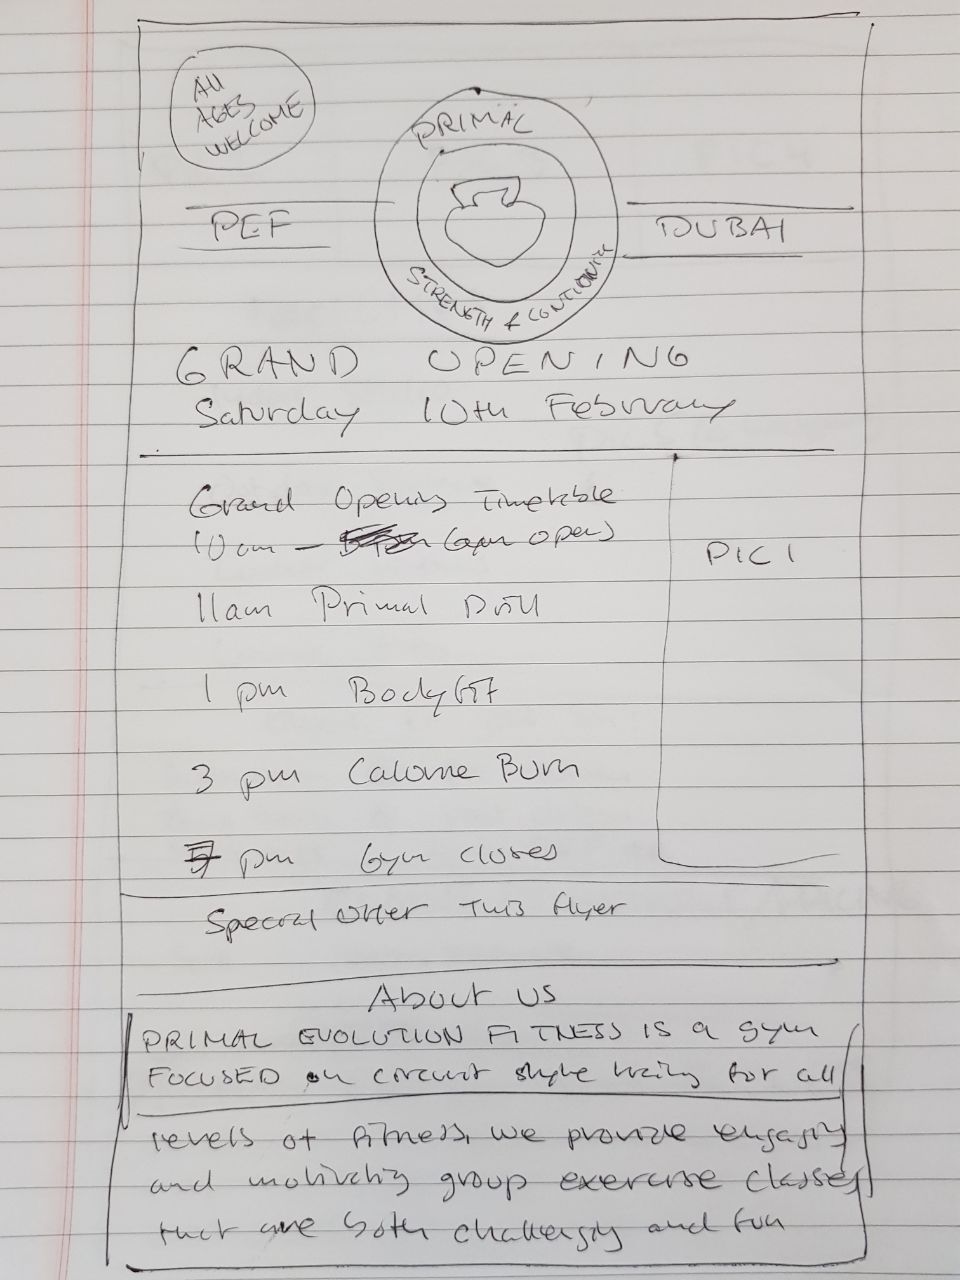 All
AGES
WELCOME
PRIMAL
STRENGTH &
PEF
DUBAI
GRAND OPENING
Saturday 10th February
Grand Opening Timetable
10am - Gym opens
PIC 1
11am Primal Drill
1 pm Bodyfit
3 pm Calorie Burn
pm Gym closes
Special Offer This flyer
About us
PRIMAL EVOLUTION FITNESS IS a gym
FOCUSED on circuit style for all
levels of fitness, we provide engaging
and motivating group exercise classes
that are both challenging and fun